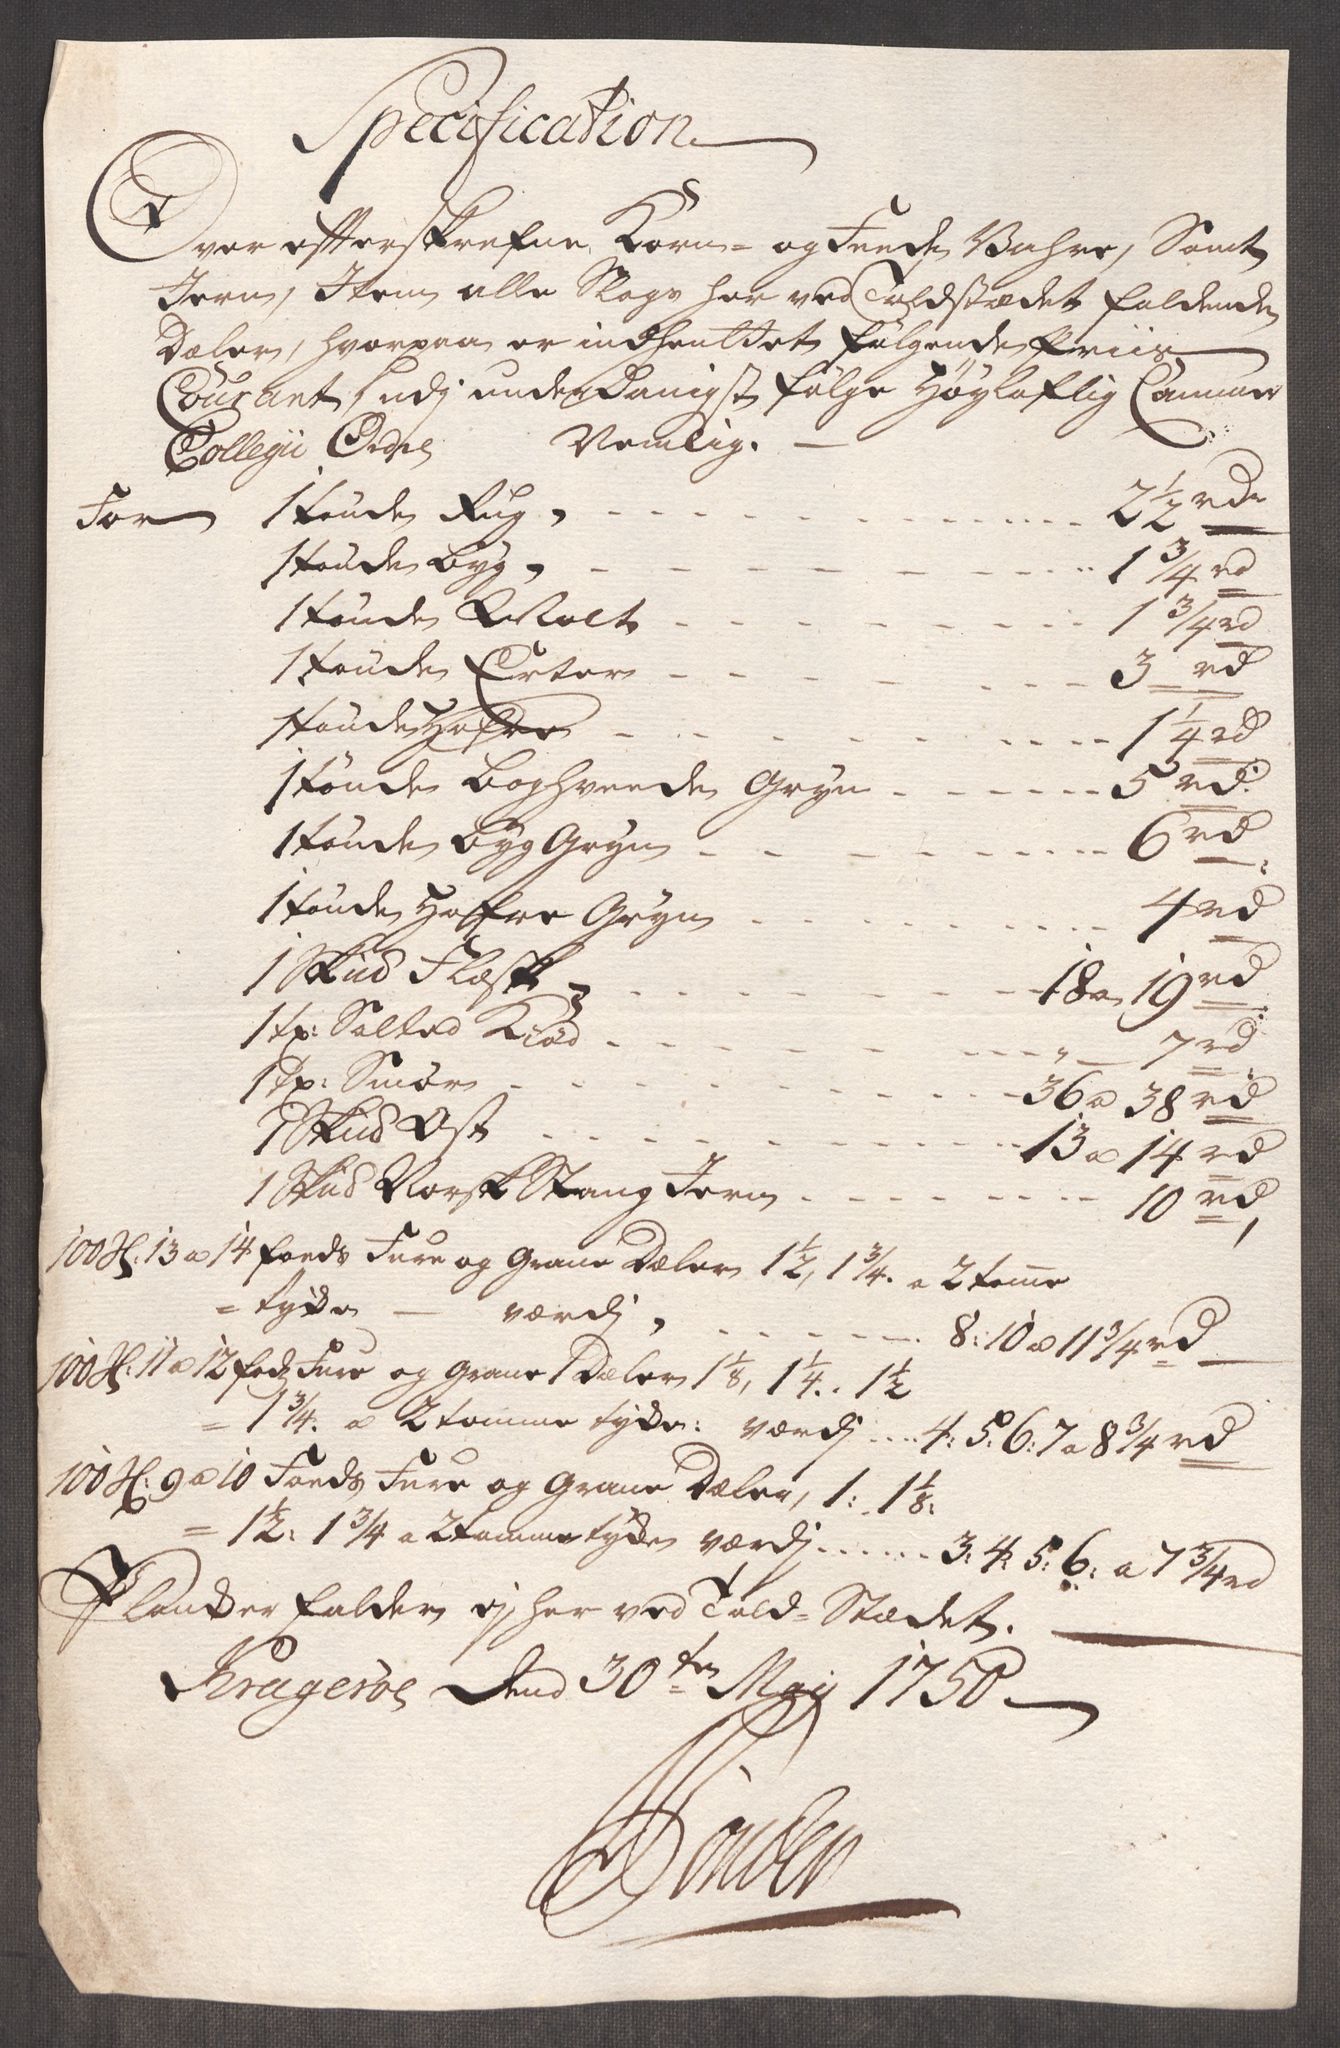 Specification
Over efterskrefne Korn- og Feede Vahre, Samt
Jern, Item alle Slags her ved Toldstædet faldende
Dæler, hvorpaa er indhentet følgende Priis
Courant, udj underdanigst følge Høyloflig Cammer
Collegii Ordre Nemlig. —
For 1 tønde Rug, 2 1/2 rdr
1 tønde Byg, 1 3/4 rd
1 tønde Malt 1 3/4 rd
1 tønde Erter 3 rd
1 tønde Hafre 1 1/4 rd
1 tønde Boghveede Gryn 5 rd:
1 tønde Byg Gryn 6 rd
1 tønde Haffre Gryn 4 rd
1 Skud Flæsk 18 a 19 rd
1 tp: Salted Kiød 7 rd
1 tp: Smør 36 a 38 rd
1 Skud Ost 13 a 14 rd
1 Skud Norsk Stang Jern 10 rd
100 St: 13 a 14 foeds Fure og Grane Dæler 1 1/2, 1 3/4. a 2 tomme
= tykke — værdj, 8: 10 a 11 3/4 rd
100 St: 11 a 12 fods Fure og Grane Dæler 1 1/8, 1 1/4. 1 1/2
= 1 3/4. a 2 tomme tykke: værdj 4: 5: 6: 7 a 8 3/4 rd
100 St: 9 a 10 Foeds Fure og Grane Dæler, 1: 1 1/8:
= 1 1/2: 1 3/4 a 2 tomme tykke værdj 3: 4: 5: 6: a 7 3/4 rd
Plancker falder ej her ved Told-Stædet.
Krageröe Dend 30ten Maij 1750